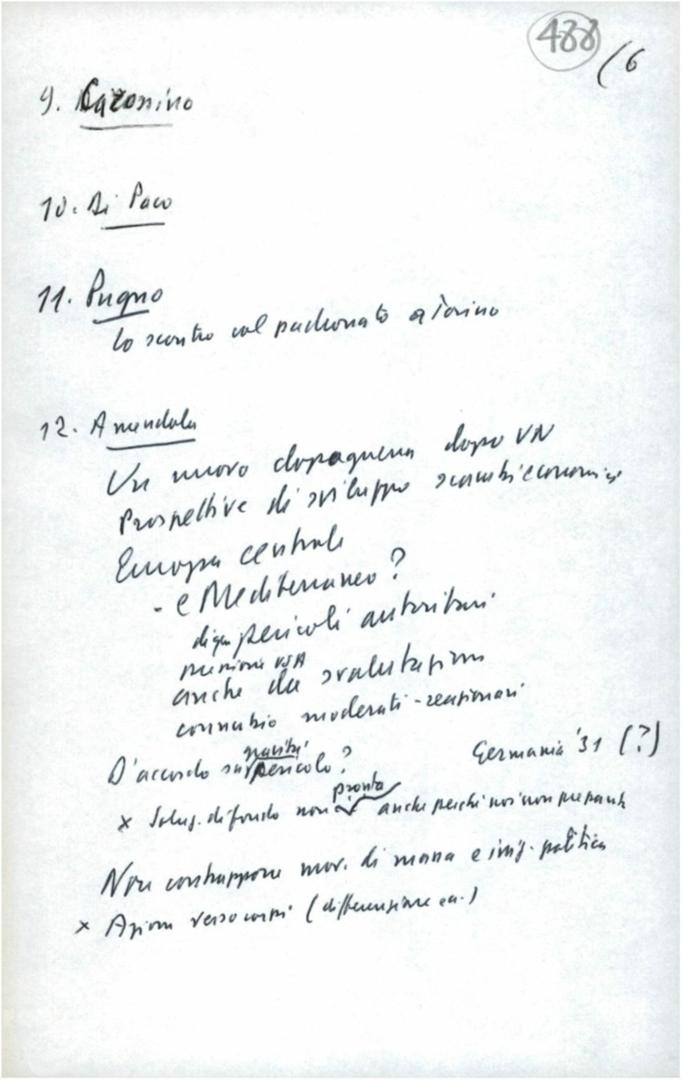 488
(6
9. Carossino
10. Di Paco
11. Pugno
lo scontro col padronato a Torino
12. Amendola
Un nuovo dopoguerra dopo VN
Prospettive di sviluppo scambi economici
Europa centrale
- e Mediterraneo?
pericoli autoritari
USA
anche da svalutazione
connubio moderati-reazionari
gravità
D'accordo su pericolo? Germania '31 (?)
pronta
x Soluz. di fondo non anche perché noi non
Non contrappone mov. di massa e iniz. politica
x Azione verso corpi (differenziare ecc.)